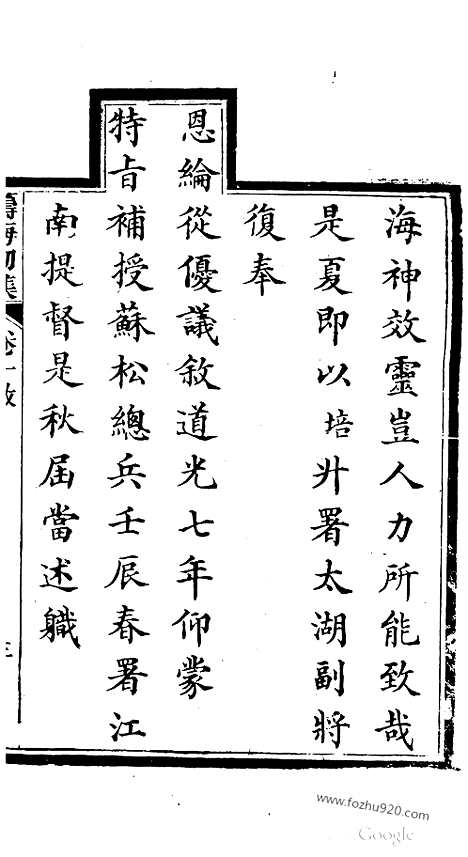 海神效靈豈人力所能致哉
是夏即以培升署太湖副將
復奉
恩綸從優議敘道光七年仰蒙
特旨補授蘇松總兵壬辰春署江
南提督是秋屆當述職
www.fozhu920.com
Google